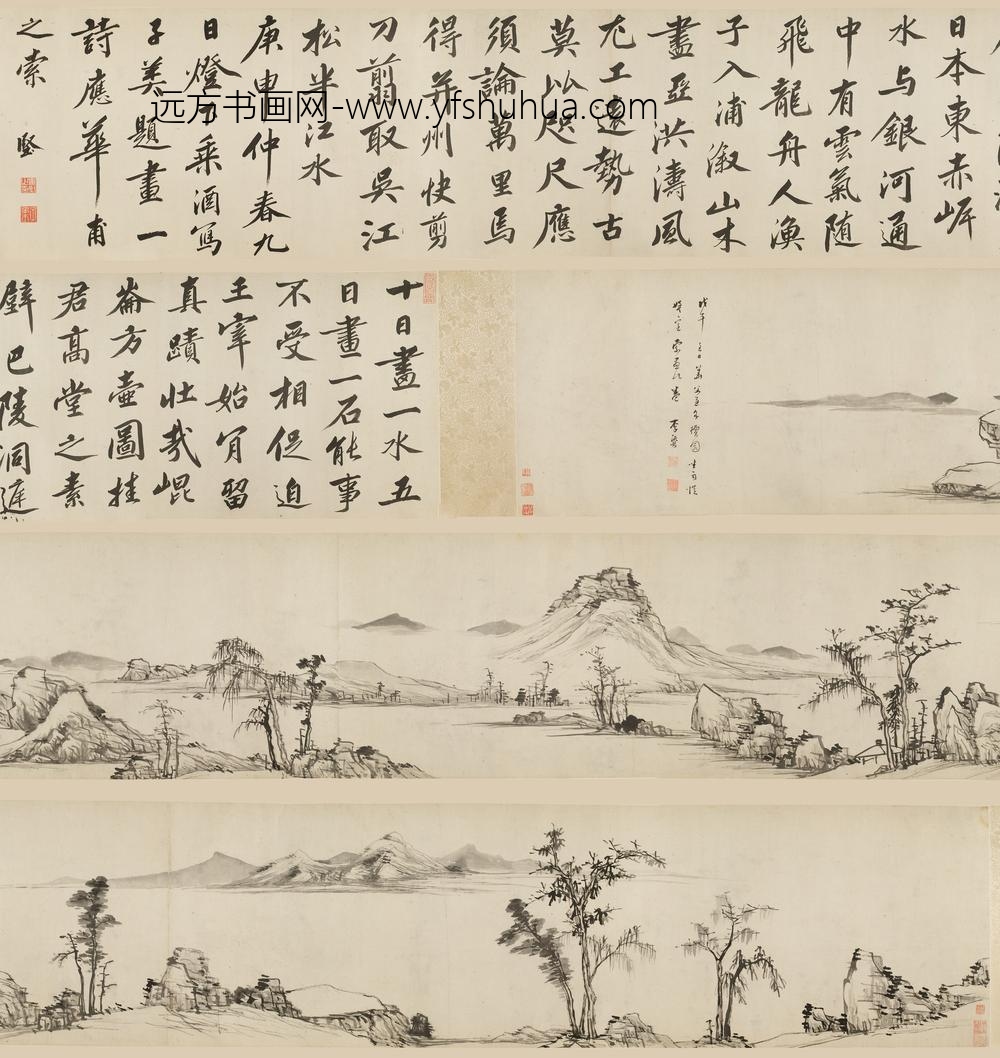 戊午
十日畫一水五
日畫一石能事
不受相促迫
王宰始肎留
真蹟壯哉崐
崙方壺圖挂
君高堂之素
壁巴陵洞
日本東赤岸
水与銀河通
中有雲氣随
飛龍舟人漁
子入浦溆山木
盡亞洪濤風
尤工遠勢古
莫以咫尺應
須論萬里焉
得并州快剪
刀翦取吳江
松半江水
庚申仲春九
日燈下乘酒寫
子美題畫一
詩應華甫
之索 堅
远方书画网-www.yfshuhua.com